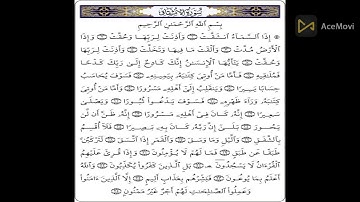 AceMovi
سُورَةُ الانشِقَاقِ
بِسْمِ ٱللَّهِ ٱلرَّحْمَٰنِ ٱلرَّحِيمِ
إِذَا ٱلسَّمَآءُ ٱنشَقَّتْ ١ وَأَذِنَتْ لِرَبِّهَا وَحُقَّتْ ٢ وَإِذَا
ٱلْأَرْضُ مُدَّتْ ٣ وَأَلْقَتْ مَا فِيهَا وَتَخَلَّتْ ٤ وَأَذِنَتْ لِرَبِّهَا
وَحُقَّتْ ٥ يَٰٓأَيُّهَا ٱلْإِنسَٰنُ إِنَّكَ كَادِحٌ إِلَىٰ رَبِّكَ كَدْحًا
فَمُلَٰقِيهِ ٦ فَأَمَّا مَنْ أُوتِيَ كِتَٰبَهُۥ بِيَمِينِهِۦ ٧ فَسَوْفَ يُحَاسَبُ
حِسَابًا يَسِيرًا ٨ وَيَنقَلِبُ إِلَىٰٓ أَهْلِهِۦ مَسْرُورًا ٩ وَأَمَّا مَنْ أُوتِيَ
كِتَٰبَهُۥ وَرَآءَ ظَهْرِهِۦ ١٠ فَسَوْفَ يَدْعُوا۟ ثُبُورًا ١١ وَيَصْلَىٰ
سَعِيرًا ١٢ إِنَّهُۥ كَانَ فِىٓ أَهْلِهِۦ مَسْرُورًا ١٣ إِنَّهُۥ ظَنَّ أَن لَّن
يَحُورَ ١٤ بَلَىٰٓ إِنَّ رَبَّهُۥ كَانَ بِهِۦ بَصِيرًا ١٥ فَلَآ أُقْسِمُ
بِٱلشَّفَقِ ١٦ وَٱلَّيْلِ وَمَا وَسَقَ ١٧ وَٱلْقَمَرِ إِذَا ٱتَّسَقَ ١٨ لَتَرْكَبُنَّ
طَبَقًا عَن طَبَقٍ ١٩ فَمَا لَهُمْ لَا يُؤْمِنُونَ ٢٠ وَإِذَا قُرِئَ عَلَيْهِمُ
ٱلْقُرْءَانُ لَا يَسْجُدُونَ ۩ ٢١ بَلِ ٱلَّذِينَ كَفَرُوا۟ يُكَذِّبُونَ ٢٢ وَٱللَّهُ
أَعْلَمُ بِمَا يُوعُونَ ٢٣ فَبَشِّرْهُم بِعَذَابٍ أَلِيمٍ ٢٤ إِلَّا ٱلَّذِينَ ءَامَنُوا۟
وَعَمِلُوا۟ ٱلصَّٰلِحَٰتِ لَهُمْ أَجْرٌ غَيْرُ مَمْنُونٍ ٢٥